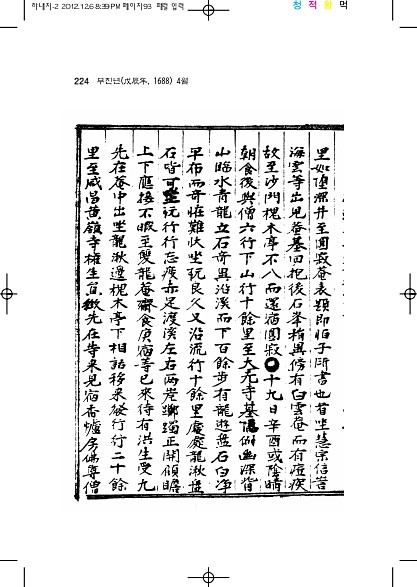 하내지-2 2012.12.6 8:39 PM 페이지93 제일 입력
청 적 황 먹
224 무진년(戊辰年, 1688) 4월
里如墮深井至圓寂菴表題即怕子所書也首坐慧宗信言
海雲等出見菴基回抱後石峯稍異傍有白雲菴而有痘疾
故至沙門槐木亭不入而還宿圓寂●十九日辛酉或陰晴
朝食後與僧六行下山行十餘里至大元寺基傍側幽深背
山臨水青龍立石奇異沿溪而下百餘步有龍遊盤石白淨
早布而奇怪難狀坐玩良久又沿流行十餘里處處龍湫盤
石皆可玩行行忘疲亦足渡溪左右兩岸躑躅正開傾瞻
上下應接不暇至雙龍菴齋食庚宿等已來待有洪生受九
先在菴中出坐龍湫邊槐木亭下相話移來發行行二十餘
里至咸昌黃嶺寺權生益徵先在寺來見宿香爐房佛尊僧